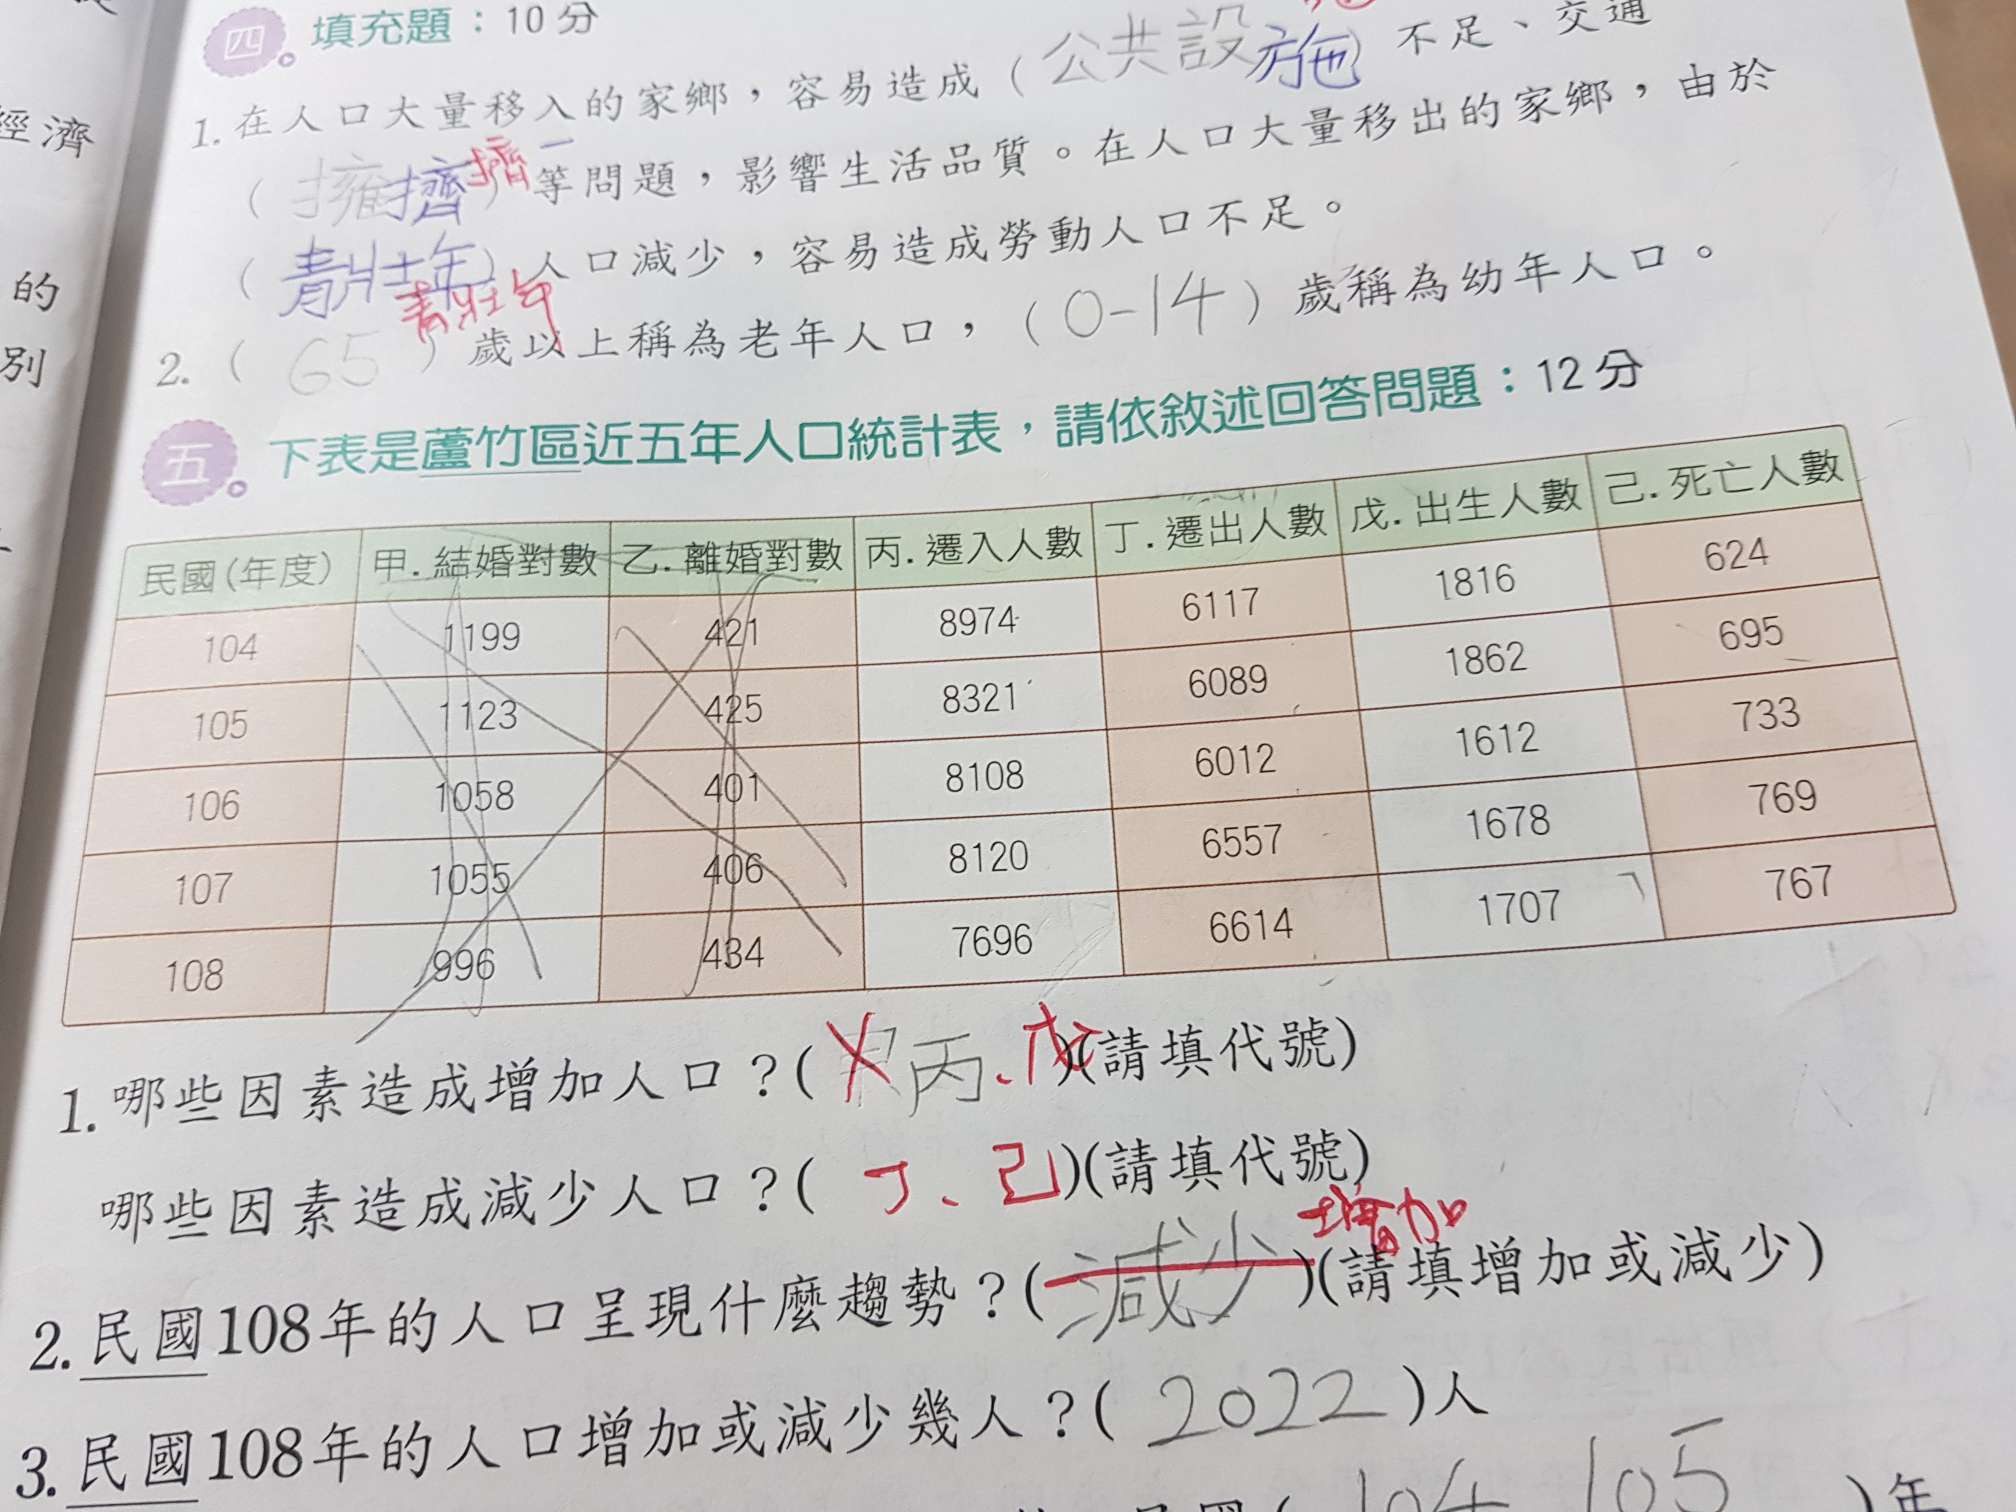 經濟
的
別
四 填充題：10分
1. 在人口大量移入的家鄉，容易造成（公共設施）不足、交通
（擁擠）擠等問題，影響生活品質。在人口大量移出的家鄉，由於
（青壯年）人口減少，容易造成勞動人口不足。
青壯年
2.（65）歲以上稱為老年人口，（0-14）歲稱為幼年人口。
五 下表是蘆竹區近五年人口統計表，請依敘述回答問題：12分
民國(年度) 甲.結婚對數 乙.離婚對數 丙.遷入人數 丁.遷出人數 戊.出生人數 己.死亡人數
104 1199 421 8974 6117 1816 624
105 1123 425 8321 6089 1862 695
106 1058 401 8108 6012 1612 733
107 1055 406 8120 6557 1678 769
108 996 434 7696 6614 1707 767
1. 哪些因素造成增加人口？(丙、戊)(請填代號)
哪些因素造成減少人口？(丁、己)(請填代號)
增加
2. 民國108年的人口呈現什麼趨勢？(減少)(請填增加或減少)
3. 民國108年的人口增加或減少幾人？(2022)人
104 105)年